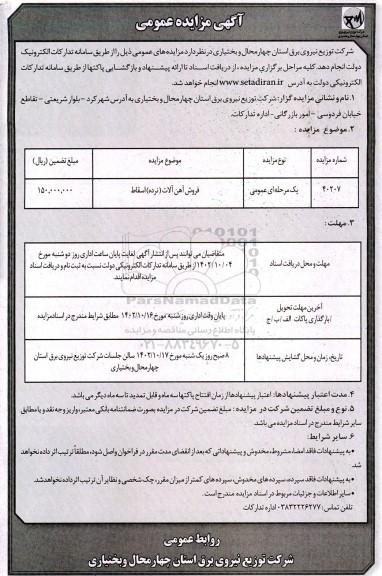 آگهی مزایده عمومی
شرکت توزیع نیروی برق استان چهارمحال و بختیاری در نظر دارد مزایده‌های عمومی ذیل را از طریق سامانه تدارکات الکترونیک
دولت انجام دهد. کلیه مراحل برگزاری مزایده، از دریافت اسناد تا ارائه پیشنهاد و بازگشایی پاکتها از طریق سامانه تدارکات
الکترونیکی دولت به آدرس www.setadiran.ir انجام خواهد شد.
۱. نام و نشانی مزایده گزار: شرکت توزیع نیروی برق استان چهارمحال و بختیاری به آدرس شهرکرد - بلوار شریعتی - تقاطع
خیابان فردوسی - امور بازرگانی - اداره تدارکات.
۲. موضوع مزایده :
شماره مزایده نوع مزایده موضوع مزایده مبلغ تضمین (ریال)
۴۰۲-۷ یک مرحله‌ای عمومی فروش آهن آلات (نرده) اسقاط ۱۵۰,۰۰۰,۰۰۰
۳. مهلت :
مهلت و محل دریافت اسناد
متقاضیان می توانند پس از انتشار آگهی لغایت پایان ساعت اداری روز دو شنبه مورخ
۱۴۰۲/۱۰/۰۴ از طریق سامانه تدارکات الکترونیکی دولت نسبت به ثبت نام و دریافت اسناد
مزایده اقدام نمایند
آخرین مهلت تحویل
/بارگذاری پاکات الف /ب /ج
پایان وقت اداری روز شنبه مورخ ۱۴۰۲/۱۰/۱۶ مطابق شرایط مندرج در اسناد مزایده
تاریخ، زمان و محل گشایش پیشنهادها
۸ صبح روز یک شنبه مورخ ۱۴۰۲/۱۰/۱۷ سالن جلسات شرکت توزیع نیروی برق استان
چهارمحال و بختیاری
ParsNamadData
پایگاه اطلاع رسانی مناقصه و مزایده
۰۲۱-۸۸۳۴۹۶۷۰-۵
۴. مدت اعتبار پیشنهادها: اعتبار پیشنهادها از زمان افتتاح پاکتها سه ماه و قابل تمدید تا سه ماه دیگر می باشد.
۵. نوع و مبلغ تضمین شرکت در مزایده : مبلغ تضمین شرکت در مزایده بصورت ضمانتنامه بانکی معتبر، واریز وجه نقد و یا مطابق
سایر شرایط مندرج در اسناد مزایده می باشد
۶. سایر شرایط:
-به پیشنهادات فاقد امضاء، مشروط، مخدوش و پیشنهاداتی که بعد از انقضای مدت مقرر در فراخوان واصل شود، مطلقاً ترتیب اثر داده نخواهد
شد.
-به پیشنهادات فاقد سپرده، سپرده های مخدوش، سپرده های کمتر از میزان مقرر، چک شخصی و نظایر آن ترتیب اثر داده نخواهد شد.
-سایر اطلاعات و جزئیات مربوط در اسناد مزایده مندرج است.
تلفن تماس: ۰۳۸۳۲۲۲۶۲۷۷ اداره تدارکات
روابط عمومی
شرکت توزیع نیروی برق استان چهارمحال وبختیاری